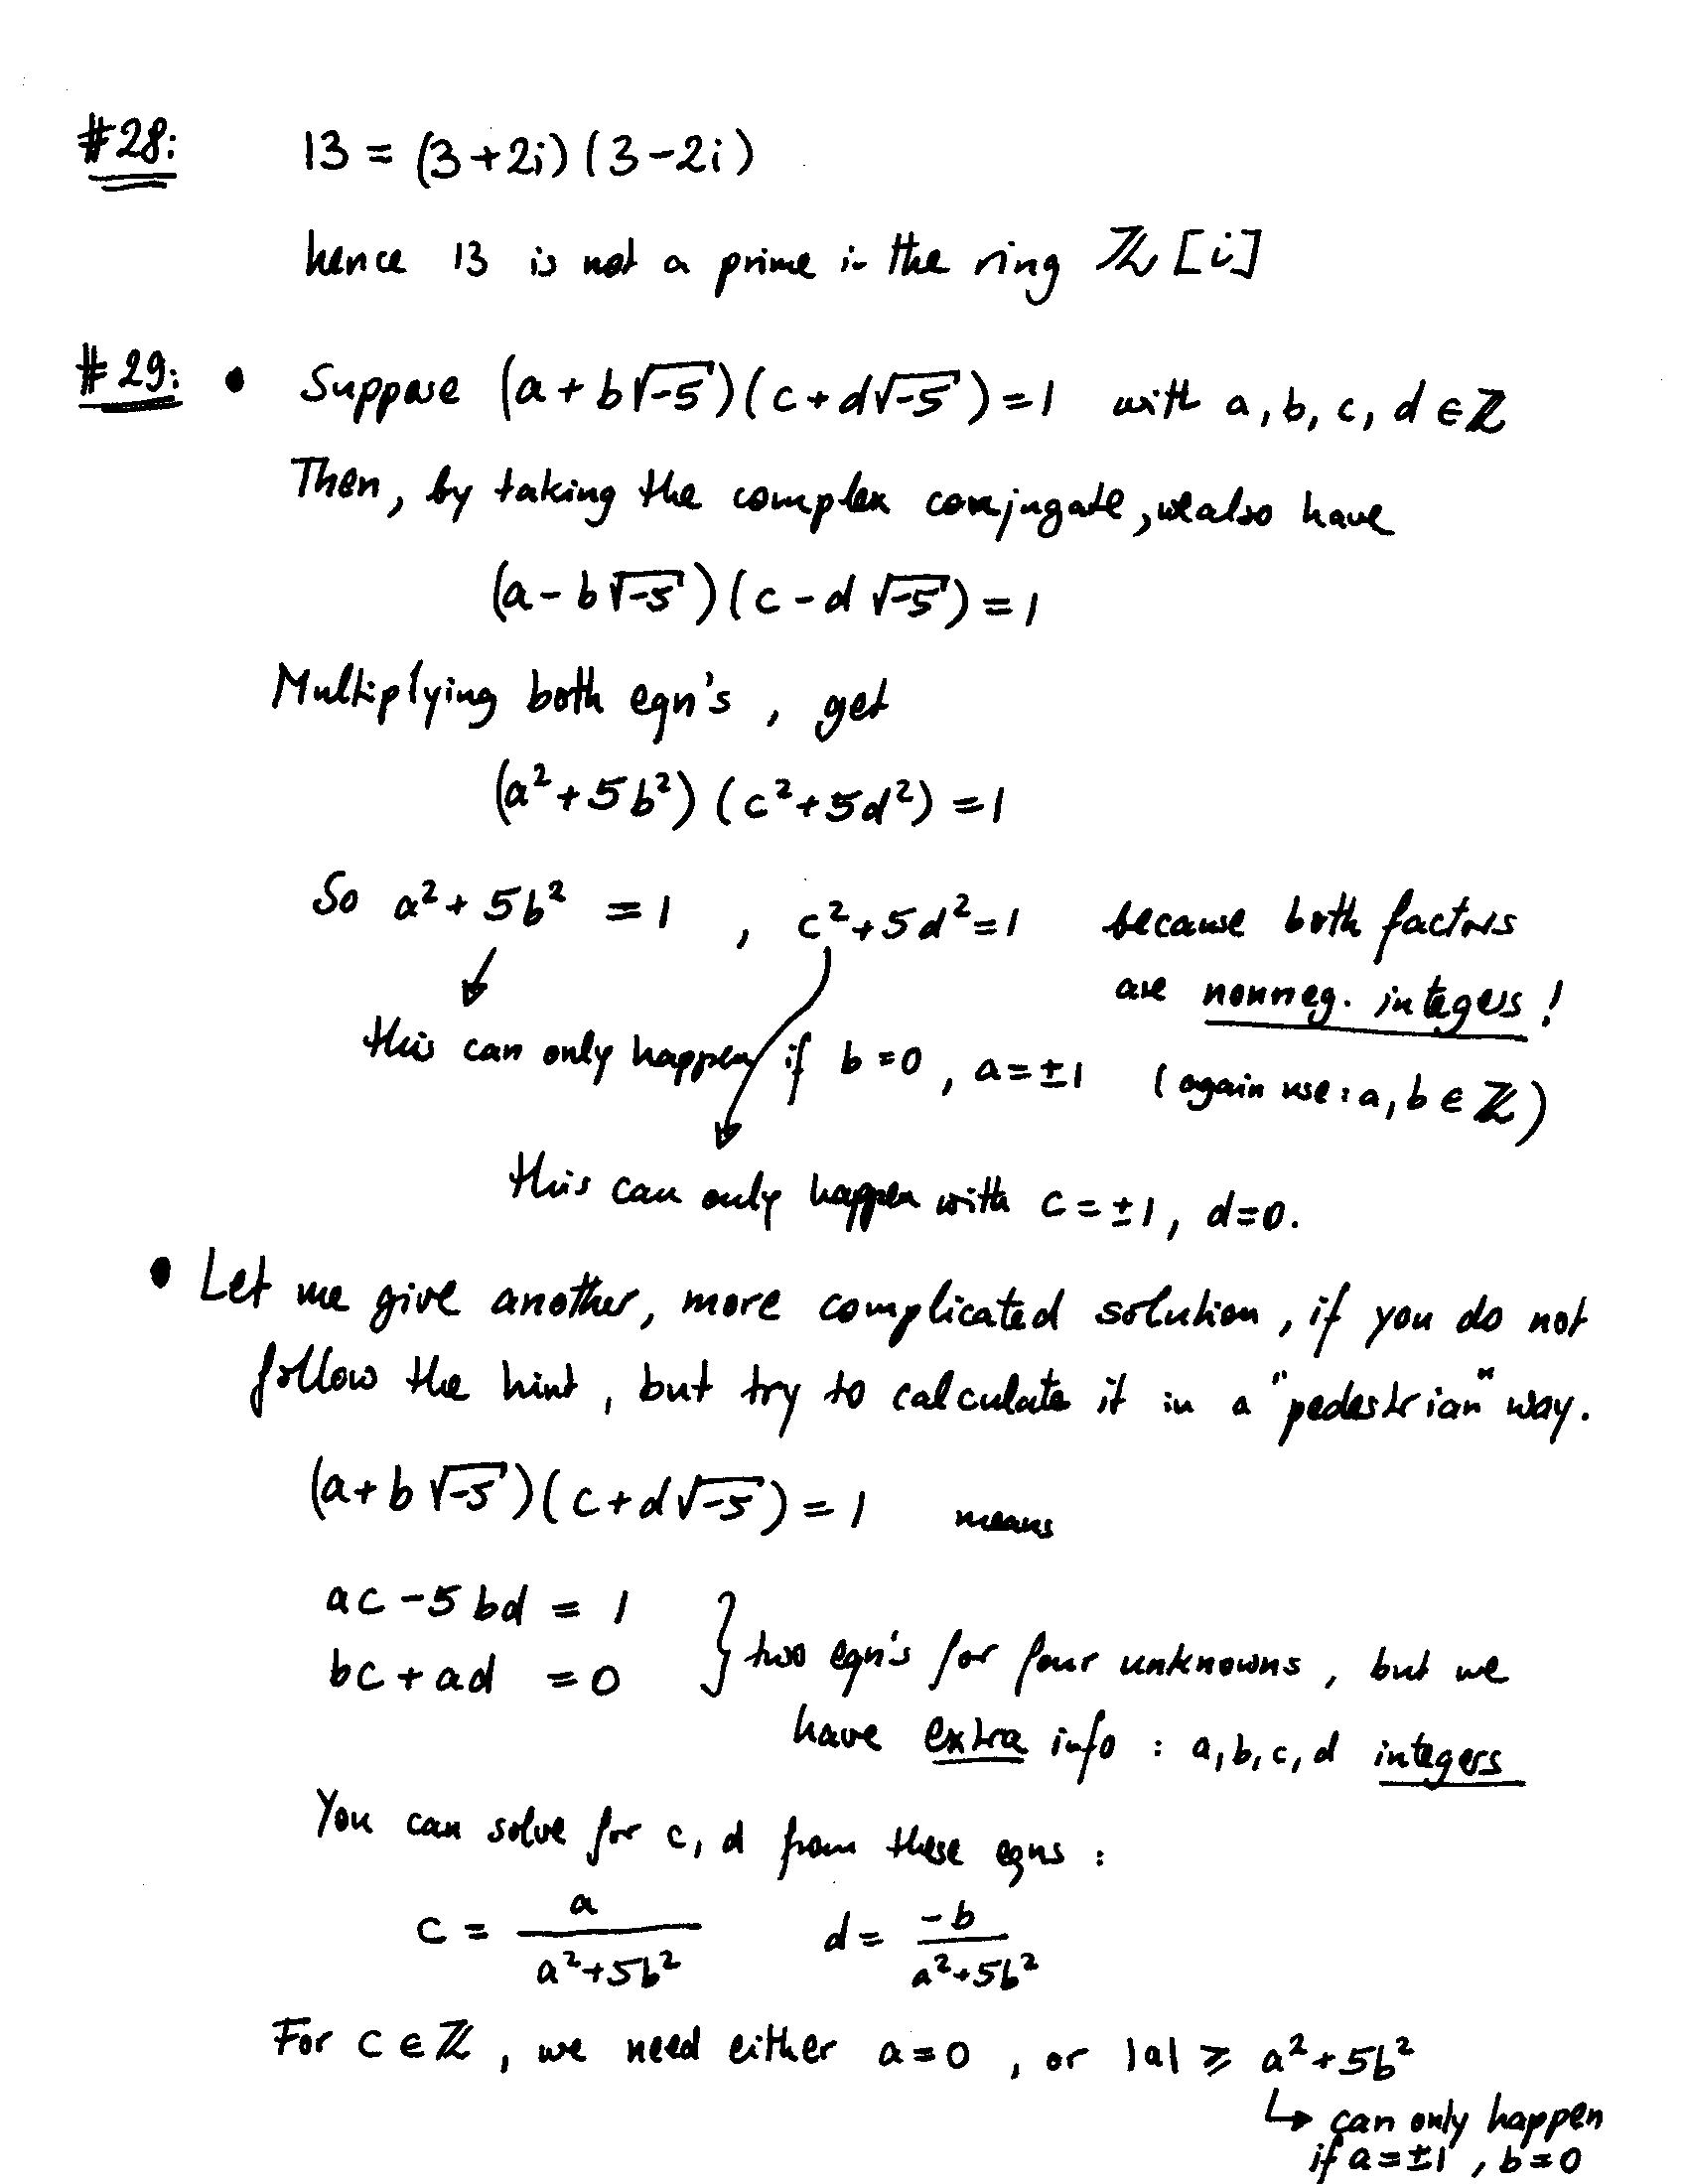 #28: 13 = (3+2i)(3-2i)
hence 13 is not a prime in the ring ℤ[i]
#29: • Suppose (a+b√-5)(c+d√-5)=1 with a,b,c,d ∈ ℤ
Then, by taking the complex conjugate, we also have
(a-b√-5)(c-d√-5)=1
Multiplying both eqn's, get
(a²+5b²)(c²+5d²)=1
So a²+5b² = 1, c²+5d²=1 because both factors
are nonneg. integers!
this can only happen if b=0, a=±1 (again use: a,b ∈ ℤ)
this can only happen with c=±1, d=0.
• Let me give another, more complicated solution, if you do not
follow the hint, but try to calculate it in a "pedestrian" way.
(a+b√-5)(c+d√-5)=1 means
ac-5bd = 1
bc+ad = 0 } two eqn's for four unknowns, but we
have extra info : a,b,c,d integers
You can solve for c,d from these eqns:
c = a/(a²+5b²) d = -b/(a²+5b²)
For c ∈ ℤ, we need either a=0, or |a| ⩾ a²+5b²
↳ can only happen
if a=±1, b=0